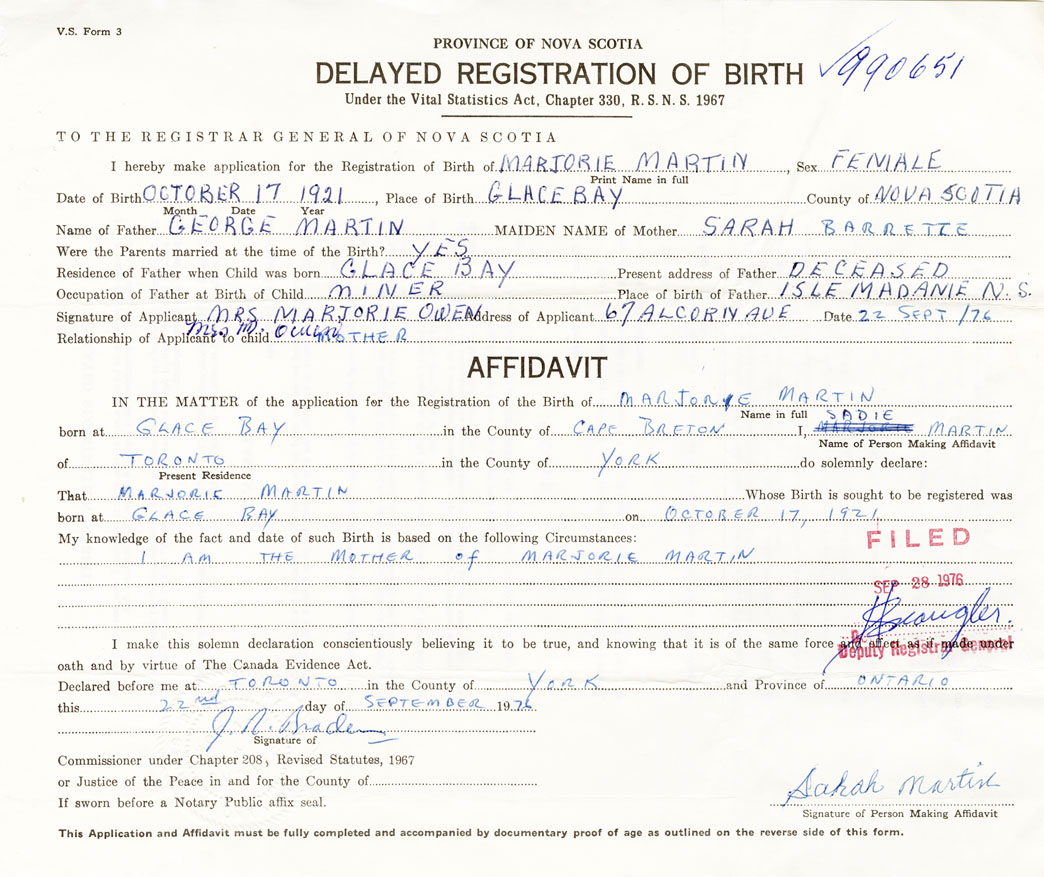 V.S. Form 3
PROVINCE OF NOVA SCOTIA
DELAYED REGISTRATION OF BIRTH
✓990651
Under the Vital Statistics Act, Chapter 330, R. S. N. S. 1967
TO THE REGISTRAR GENERAL OF NOVA SCOTIA
I hereby make application for the Registration of Birth of MARJORIE MARTIN, Sex FEMALE
Print Name in full
Date of Birth OCTOBER 17 1921, Place of Birth GLACE BAY County of NOVA SCOTIA
Month Date Year
Name of Father GEORGE MARTIN MAIDEN NAME of Mother SARAH BARRETTE
Were the Parents married at the time of the Birth? YES
Residence of Father when Child was born GLACE BAY Present address of Father DECEASED
Occupation of Father at Birth of Child MINER Place of birth of Father ISLE MADANIE N.S.
Signature of Applicant MRS MARJORIE OWEN Address of Applicant 67 ALCORN AVE Date 22 SEPT /76
Mrs M. Owen
Relationship of Applicant to child MOTHER
AFFIDAVIT
IN THE MATTER of the application for the Registration of the Birth of MARJORIE MARTIN
Name in full SADIE
born at GLACE BAY in the County of CAPE BRETON I, MARJORIE MARTIN
Name of Person Making Affidavit
of TORONTO in the County of YORK do solemnly declare:
Present Residence
That MARJORIE MARTIN Whose Birth is sought to be registered was
born at GLACE BAY on OCTOBER 17, 1921
My knowledge of the fact and date of such Birth is based on the following Circumstances:
FILED
I AM THE MOTHER of MARJORIE MARTIN
SEP 28 1976
I make this solemn declaration conscientiously believing it to be true, and knowing that it is of the same force and effect as if made under
Deputy Registrar General
oath and by virtue of The Canada Evidence Act.
Declared before me at TORONTO in the County of YORK and Province of ONTARIO
this 22nd day of SEPTEMBER 1976
Signature of
Commissioner under Chapter 208, Revised Statutes, 1967
or Justice of the Peace in and for the County of
If sworn before a Notary Public affix seal.
Sarah Martin
Signature of Person Making Affidavit
This Application and Affidavit must be fully completed and accompanied by documentary proof of age as outlined on the reverse side of this form.